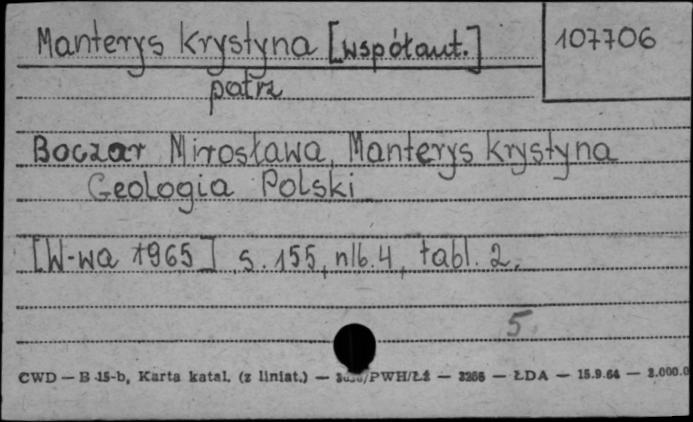 Manterys Krystyna [współaut.] 107706
patrz
Boczar Mirosława, Manterys Krystyna
Geologia Polski
[W-wa 1965] s. 155, nlb. 4, tabl. 2.
5.
CWD — B 15-b, Karta katal. (z liniat.) — /PWH/ŁZ — 3266 — ŁDA — 15.9.64 — 2.000.0